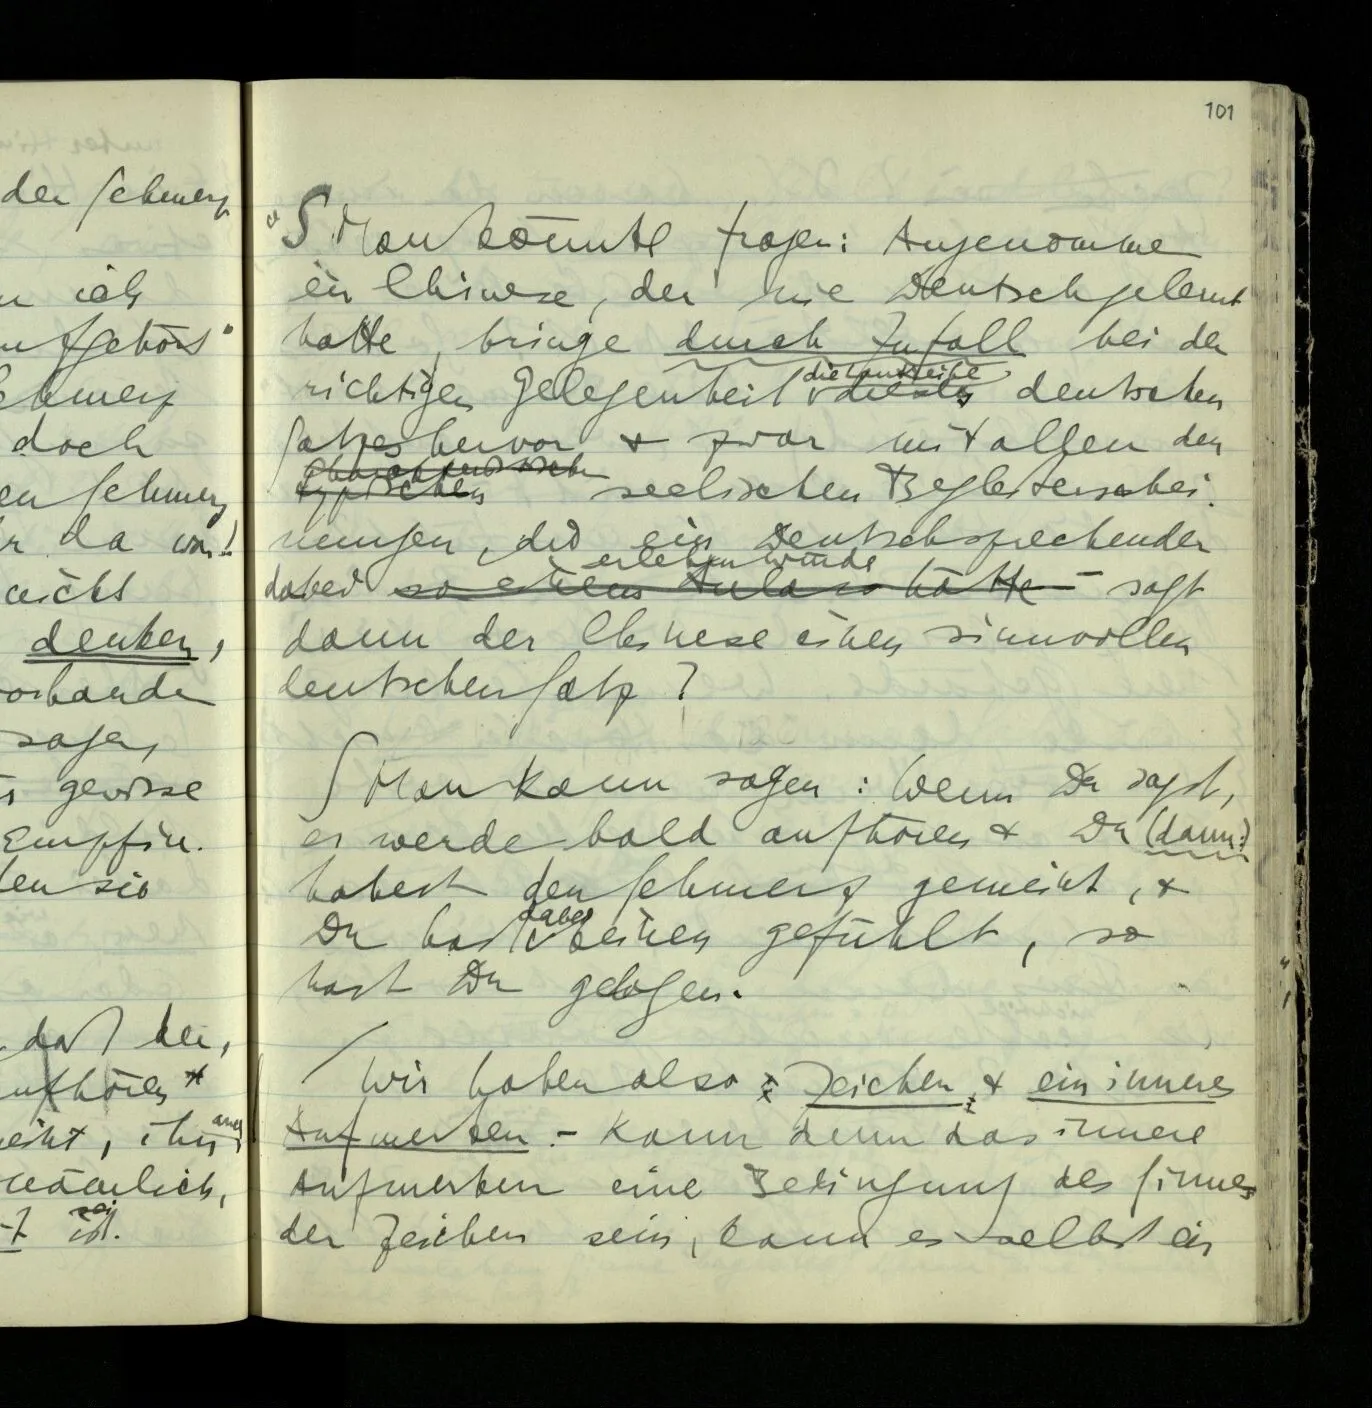 der Schmerz
ich
aufgehört"
Schmerz
doch
den Schmerz
da war!
nicht
denken,
vorhanden
sagen,
gewisse
Empfin-
den sie
daß der,
aufhören
ihn
nämlich,
sei
ist.
101
S Man könnte fragen: Angenomme
ein Chinese, der nie Deutsch gelernt
hatte, bringe durch Zufall bei der
die Lautreihe
richtigen Gelegenheit dieses deutschen
Satzes hervor & zwar mit allen den
charakteristischen
typischen seelischen Begleiterschei-
nungen, die ein Deutschsprechender
erleben würde
dabei so einem Anlass hätte – sagt
dann der Chinese einen sinnvollen
deutschen Satz?
∫ Man kann sagen: Wenn Du sagst,
es werde bald aufhören & Du (dann:)
habest den Schmerz gemeint, &
dabei
Du hast keinen gefühlt, so
hast Du gelogen.
/ Wir haben also: Zeichen; & ein inneres
Aufmerken. – Kann denn das innere
Aufmerken eine Bedingung des Sinnes
der Zeichen sein, kann es selbst ein